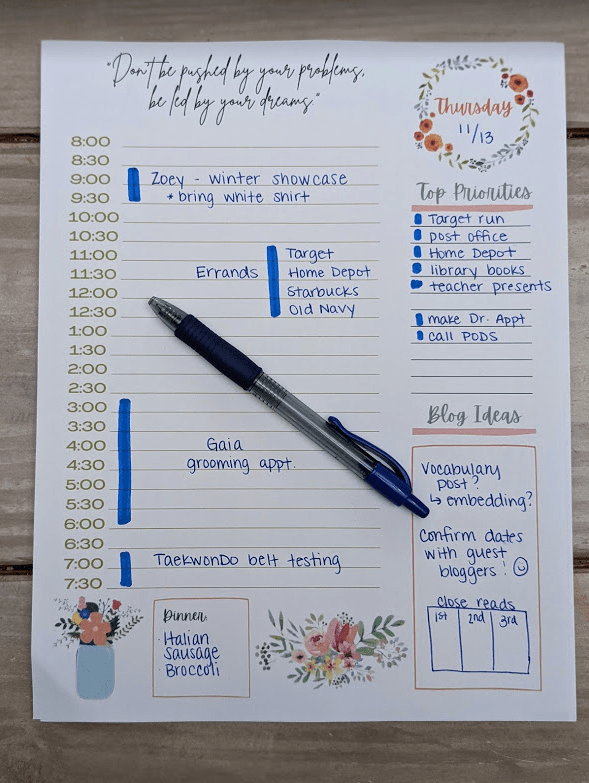 "Don't be pushed by your problems,
be led by your dreams."
Thursday
11/13
8:00
8:30
9:00 Zoey - winter showcase
9:30 * bring white shirt
10:00
10:30
11:00 Target
11:30 Errands Home Depot
12:00 Starbucks
12:30 Old Navy
1:00
1:30
2:00
2:30
3:00
3:30
4:00 Gaia
4:30 grooming appt.
5:00
5:30
6:00
6:30
7:00 TaekwonDo belt testing
7:30
Top Priorities
Target run
post office
Home Depot
library books
teacher presents
make Dr. Appt
call PODS
Blog Ideas
Vocabulary
post?
↳ embedding?
Confirm dates
with guest
bloggers! ☺
close reads
1st 2nd 3rd
Dinner:
· Italian
Sausage
· Broccoli